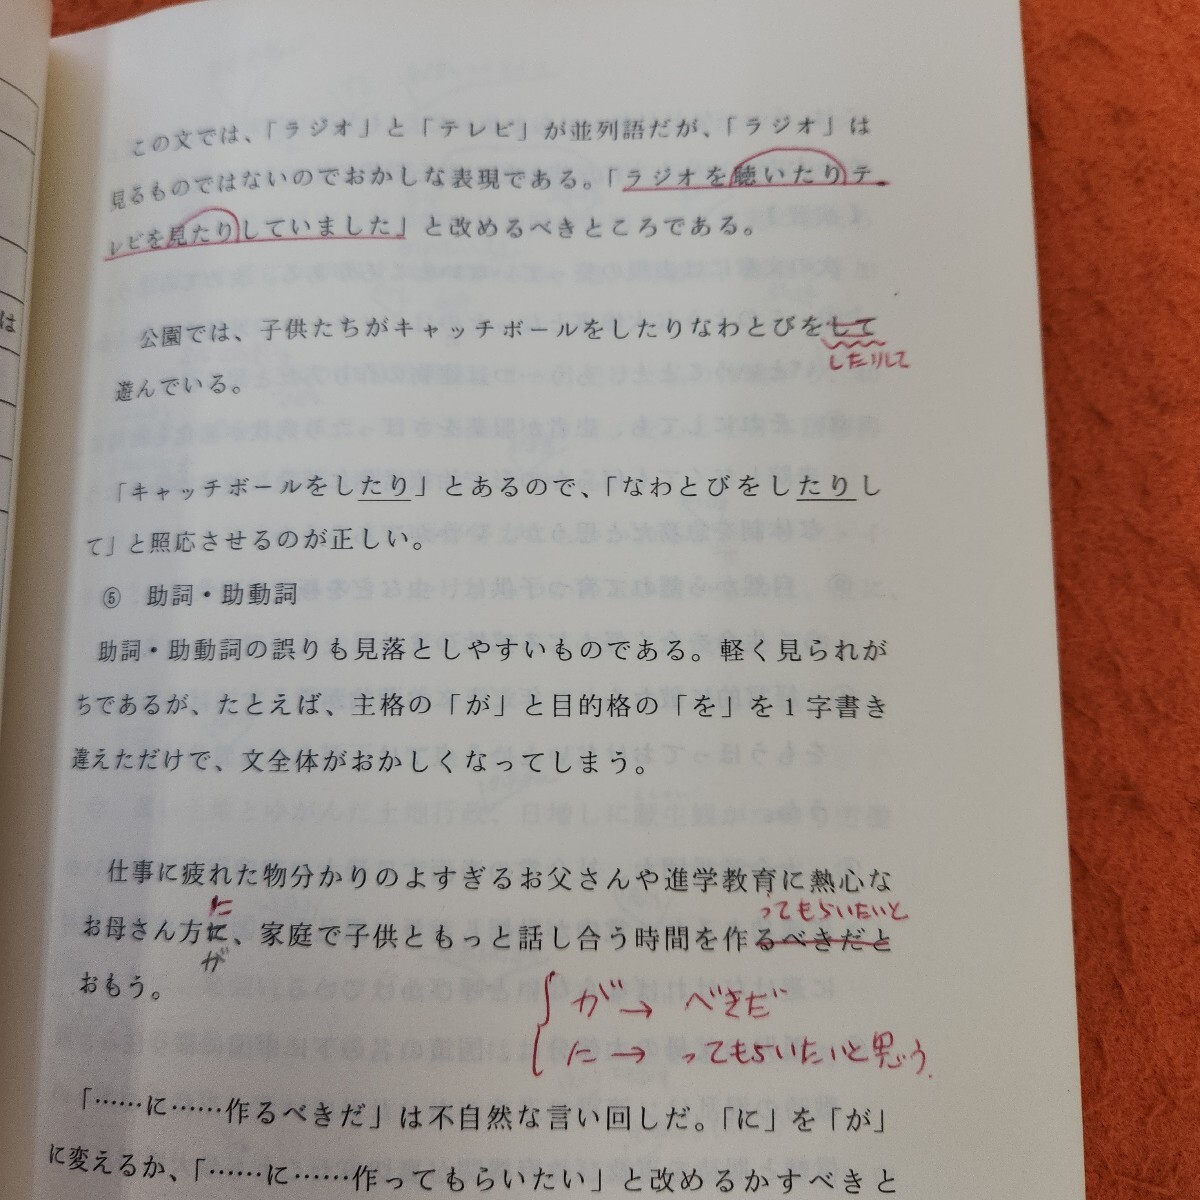 この文では、「ラジオ」と「テレビ」が並列語だが、「ラジオ」は
見るものではないのでおかしな表現である。「ラジオを聴いたりテ
レビを見たりしていました」と改めるべきところである。
公園では、子供たちがキャッチボールをしたりなわとびをして
したりして
遊んでいる。
「キャッチボールをしたり」とあるので、「なわとびをしたりし
て」と照応させるのが正しい。
⑤ 助詞・助動詞
助詞・助動詞の誤りも見落としやすいものである。軽く見られが
ちであるが、たとえば、主格の「が」と目的格の「を」を1字書き
違えただけで、文全体がおかしくなってしまう。
仕事に疲れた物分かりのよすぎるお父さんや進学教育に熱心な
に
ってもらいたいと
お母さん方に、家庭で子供ともっと話し合う時間を作るべきだと
が
おもう。
が→べきだ
に→ってもらいたいと思う。
「……に……作るべきだ」は不自然な言い回しだ。「に」を「が」
に変えるか、「……に……作ってもらいたい」と改めるかすべきと
は